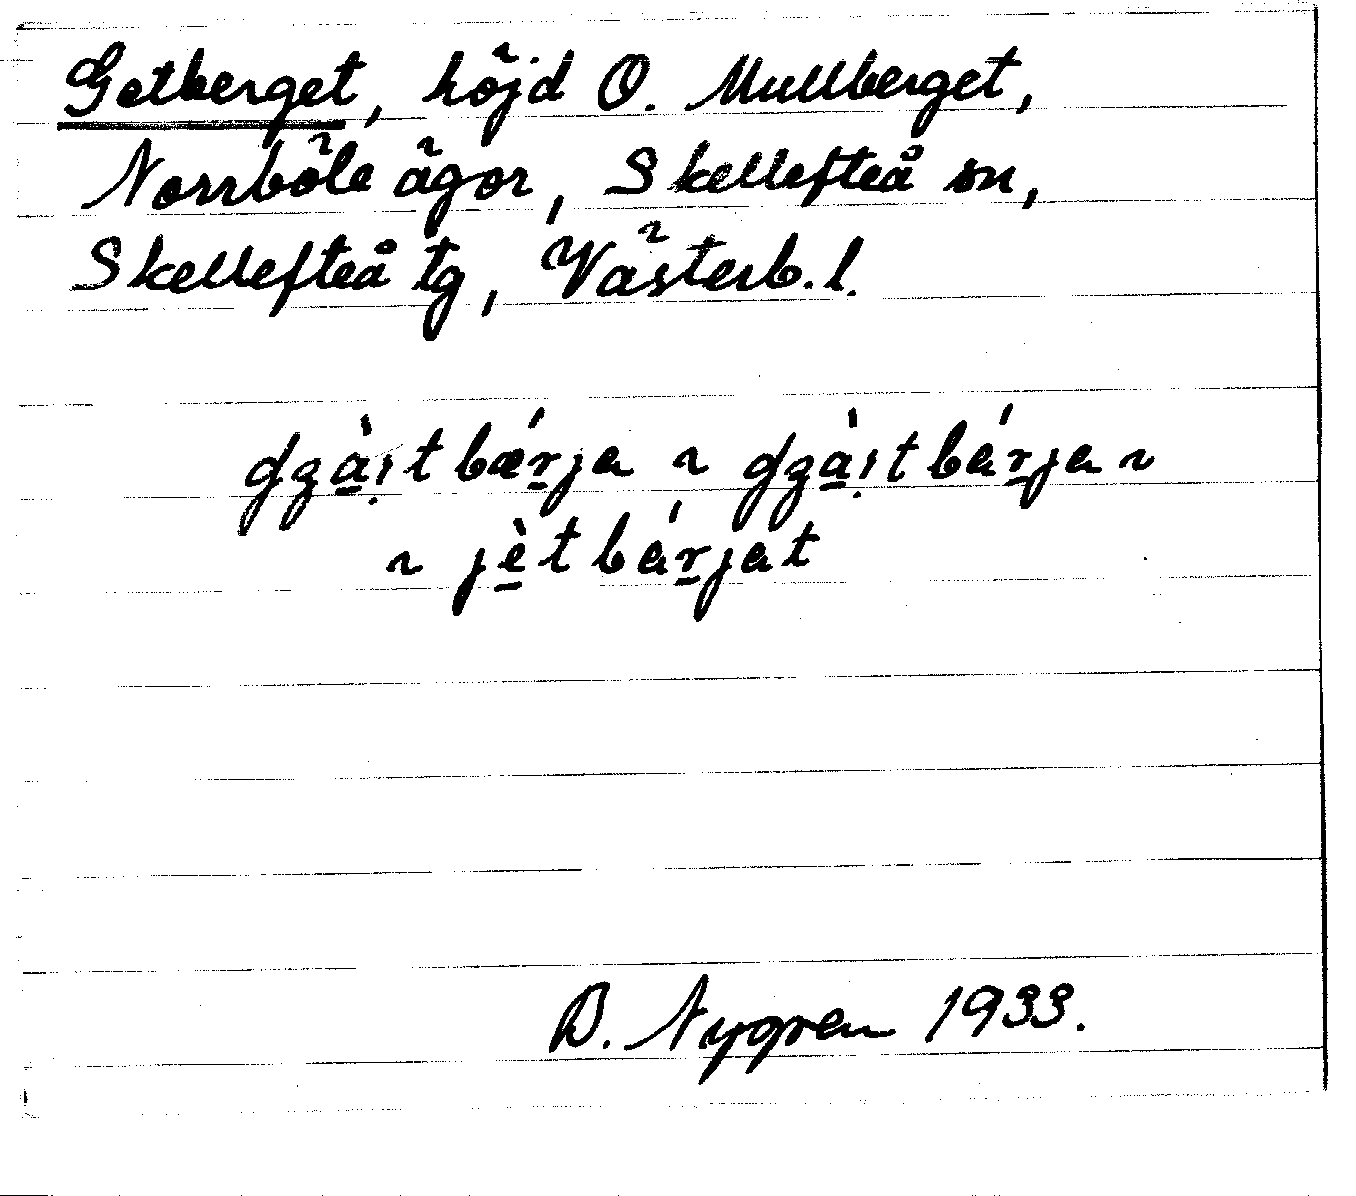 Getberget, höjd O. Mullberget,
Norrböle ägor, Skellefteå sn,
Skellefteå tg, Västerb. l.
dʒà̱i̩tbǽr̠ja ~ dʒà̱i̩tbár̠ja ~
~ jè̱tbár̠jat
D. Nygren 1933.